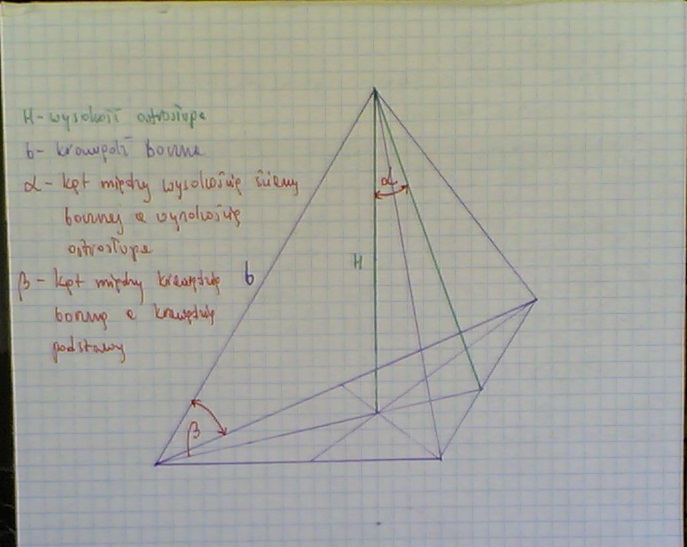 H - wysokość ostrosłupa
b - krawędź boczna
α - kąt między wysokością ściany
bocznej a wysokością
ostrosłupa
β - kąt między krawędzią
boczną a krawędzią
podstawy
α
H
b
β